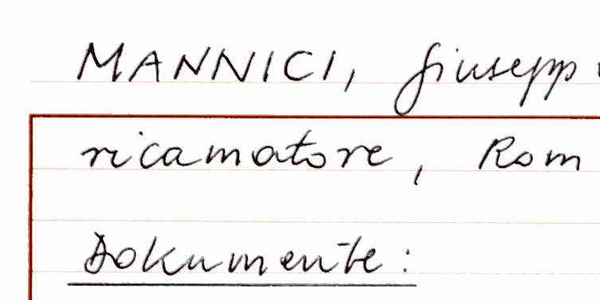 MANNICI, Giusepp
ricamatore, Rom
Dokumente: